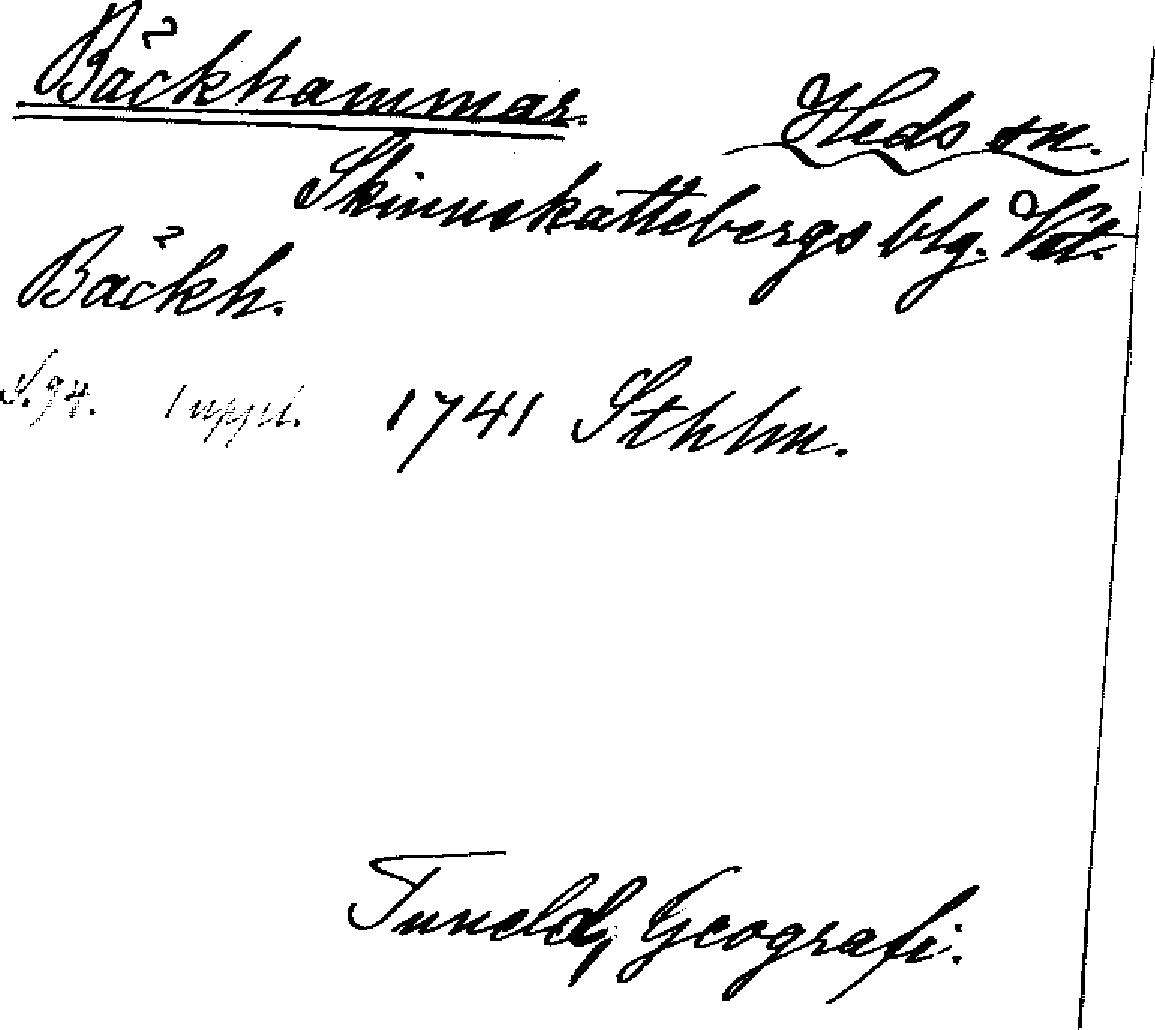 Bäckhammar. Heds sn.
Skinnskattebergs blg. Vstl.
Bäckh.
S. 94. 1 uppl. 1741 Sthlm.
Tuneld, Geografi.